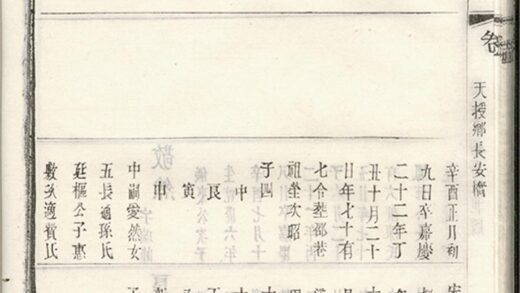 卷
天授鄉長安橋
辛酉正月初
九日卒嘉慶
二十二年丁
丑十月二十
年七十有
七合葬邵巷
祖塋次昭
子四
中
艮
寅
申
中嗣愛然女
五長適孫氏
廷樞公子惠
敷次適賀氏